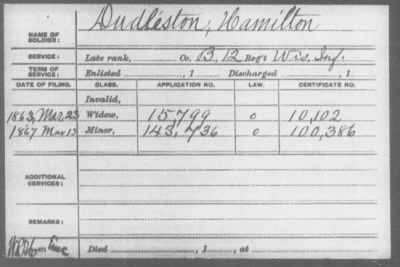 NAME OF SOLDIER: Dudleston, Hamilton
SERVICE: Late rank, Co. B, 12 Reg't Wis. Inf.
TERM OF SERVICE: Enlisted , 1 Discharged , 1
DATE OF FILING. CLASS. APPLICATION NO. LAW. CERTIFICATE NO.
Invalid,
1863, Mar. 23 Widow, 15,799 o 10,102
1867 Mar 13 Minor, 143,736 o 100,386
ADDITIONAL SERVICES:
REMARKS:
Died , 1 , at